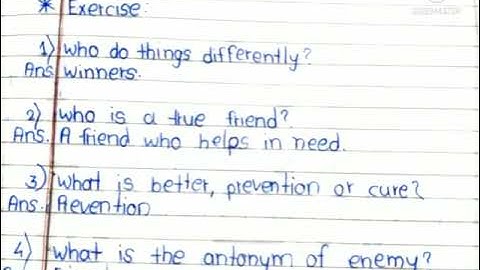 * Exercise:
1) who do things differently?
Ans winners.
2) who is a true friend?
Ans. A friend who helps in need.
3) what is better, prevention or cure?
Ans. Prevention
4) what is the antonym of enemy?